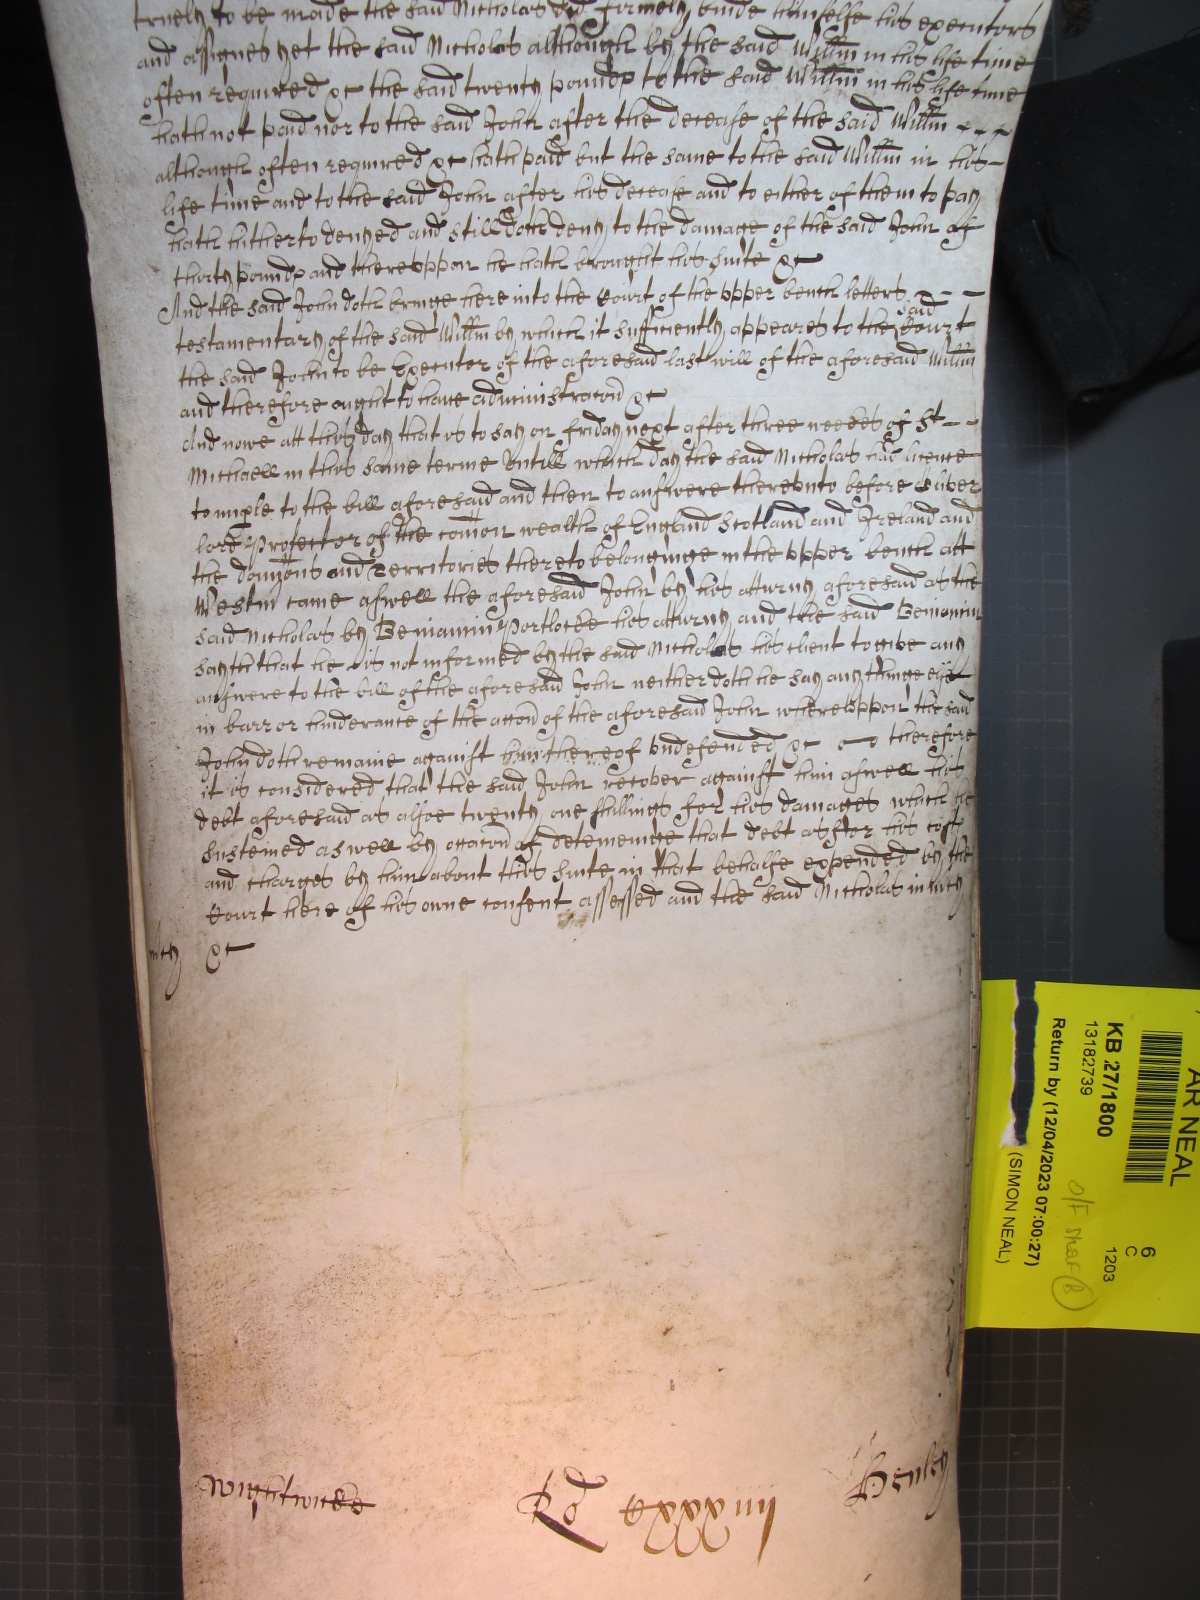 truely to be made the said Nicholas did firmely binde himselfe his executors
and assignes yet the said Nicholas although by the said Willm in his life time
often required &c the said twenty pounds to the said Willm in his life time
hath not paid nor to the said John after the decease of the said Willm
although often required &c hath paid but the same to the said Willm in his
life time and to the said John after his decease and to either of them to pay
hath hitherto denyed and still doth deny to the damage of the said John of
thirty pounds and thereuppon he hath brought his suite &c
And the said John doth bringe here into the Court of the upper bench letters
testamentary of the said Willm by which it sufficiently appeares to the said Court
the said John to be Executor of the aforesaid last will of the aforesaid Willm
and therefore ought to have administracon &c
And nowe att this day that is to say on friday next after three weekes of St
Michaell in this same terme Untill which day the said Nicholas had licence
to imple to the bill aforesaid and then to answere thereunto before Oliver
lord Protector of the comon wealth of England Scotland and Ireland and
the domyons and Territories thereto belonginge in the upper bench att
Westm came aswell the aforesaid John by his atturny aforesaid as the
said Nicholas by Beniamin Portlocke his atturny and the said Beniamin
sayth that he is not informed by the said Nicholas his client to give any
answere to the bill of the aforesaid John neither doth he say any thinge else
in barr or hinderance of the accon of the aforesaid John whereuppon the said
John doth remaine against him thereof undefended &c therefore
it is considered that the said John recover against him aswell his
debt aforesaid as alsoe twenty one shillings for his damages which he
susteined aswell by occacon of deteineinge that debt as for his costs
and charges by him about this suite in that behalfe expended by the
Court here of his owne consent assessed and the said Nicholas in mcy
mcy &c
Wightwicke Rd Henley
AR NEAL
KB 27/1800
13182739
Return by (12/04/2023 07:00:27)
(SIMON NEAL)
6
C
1203
O/F